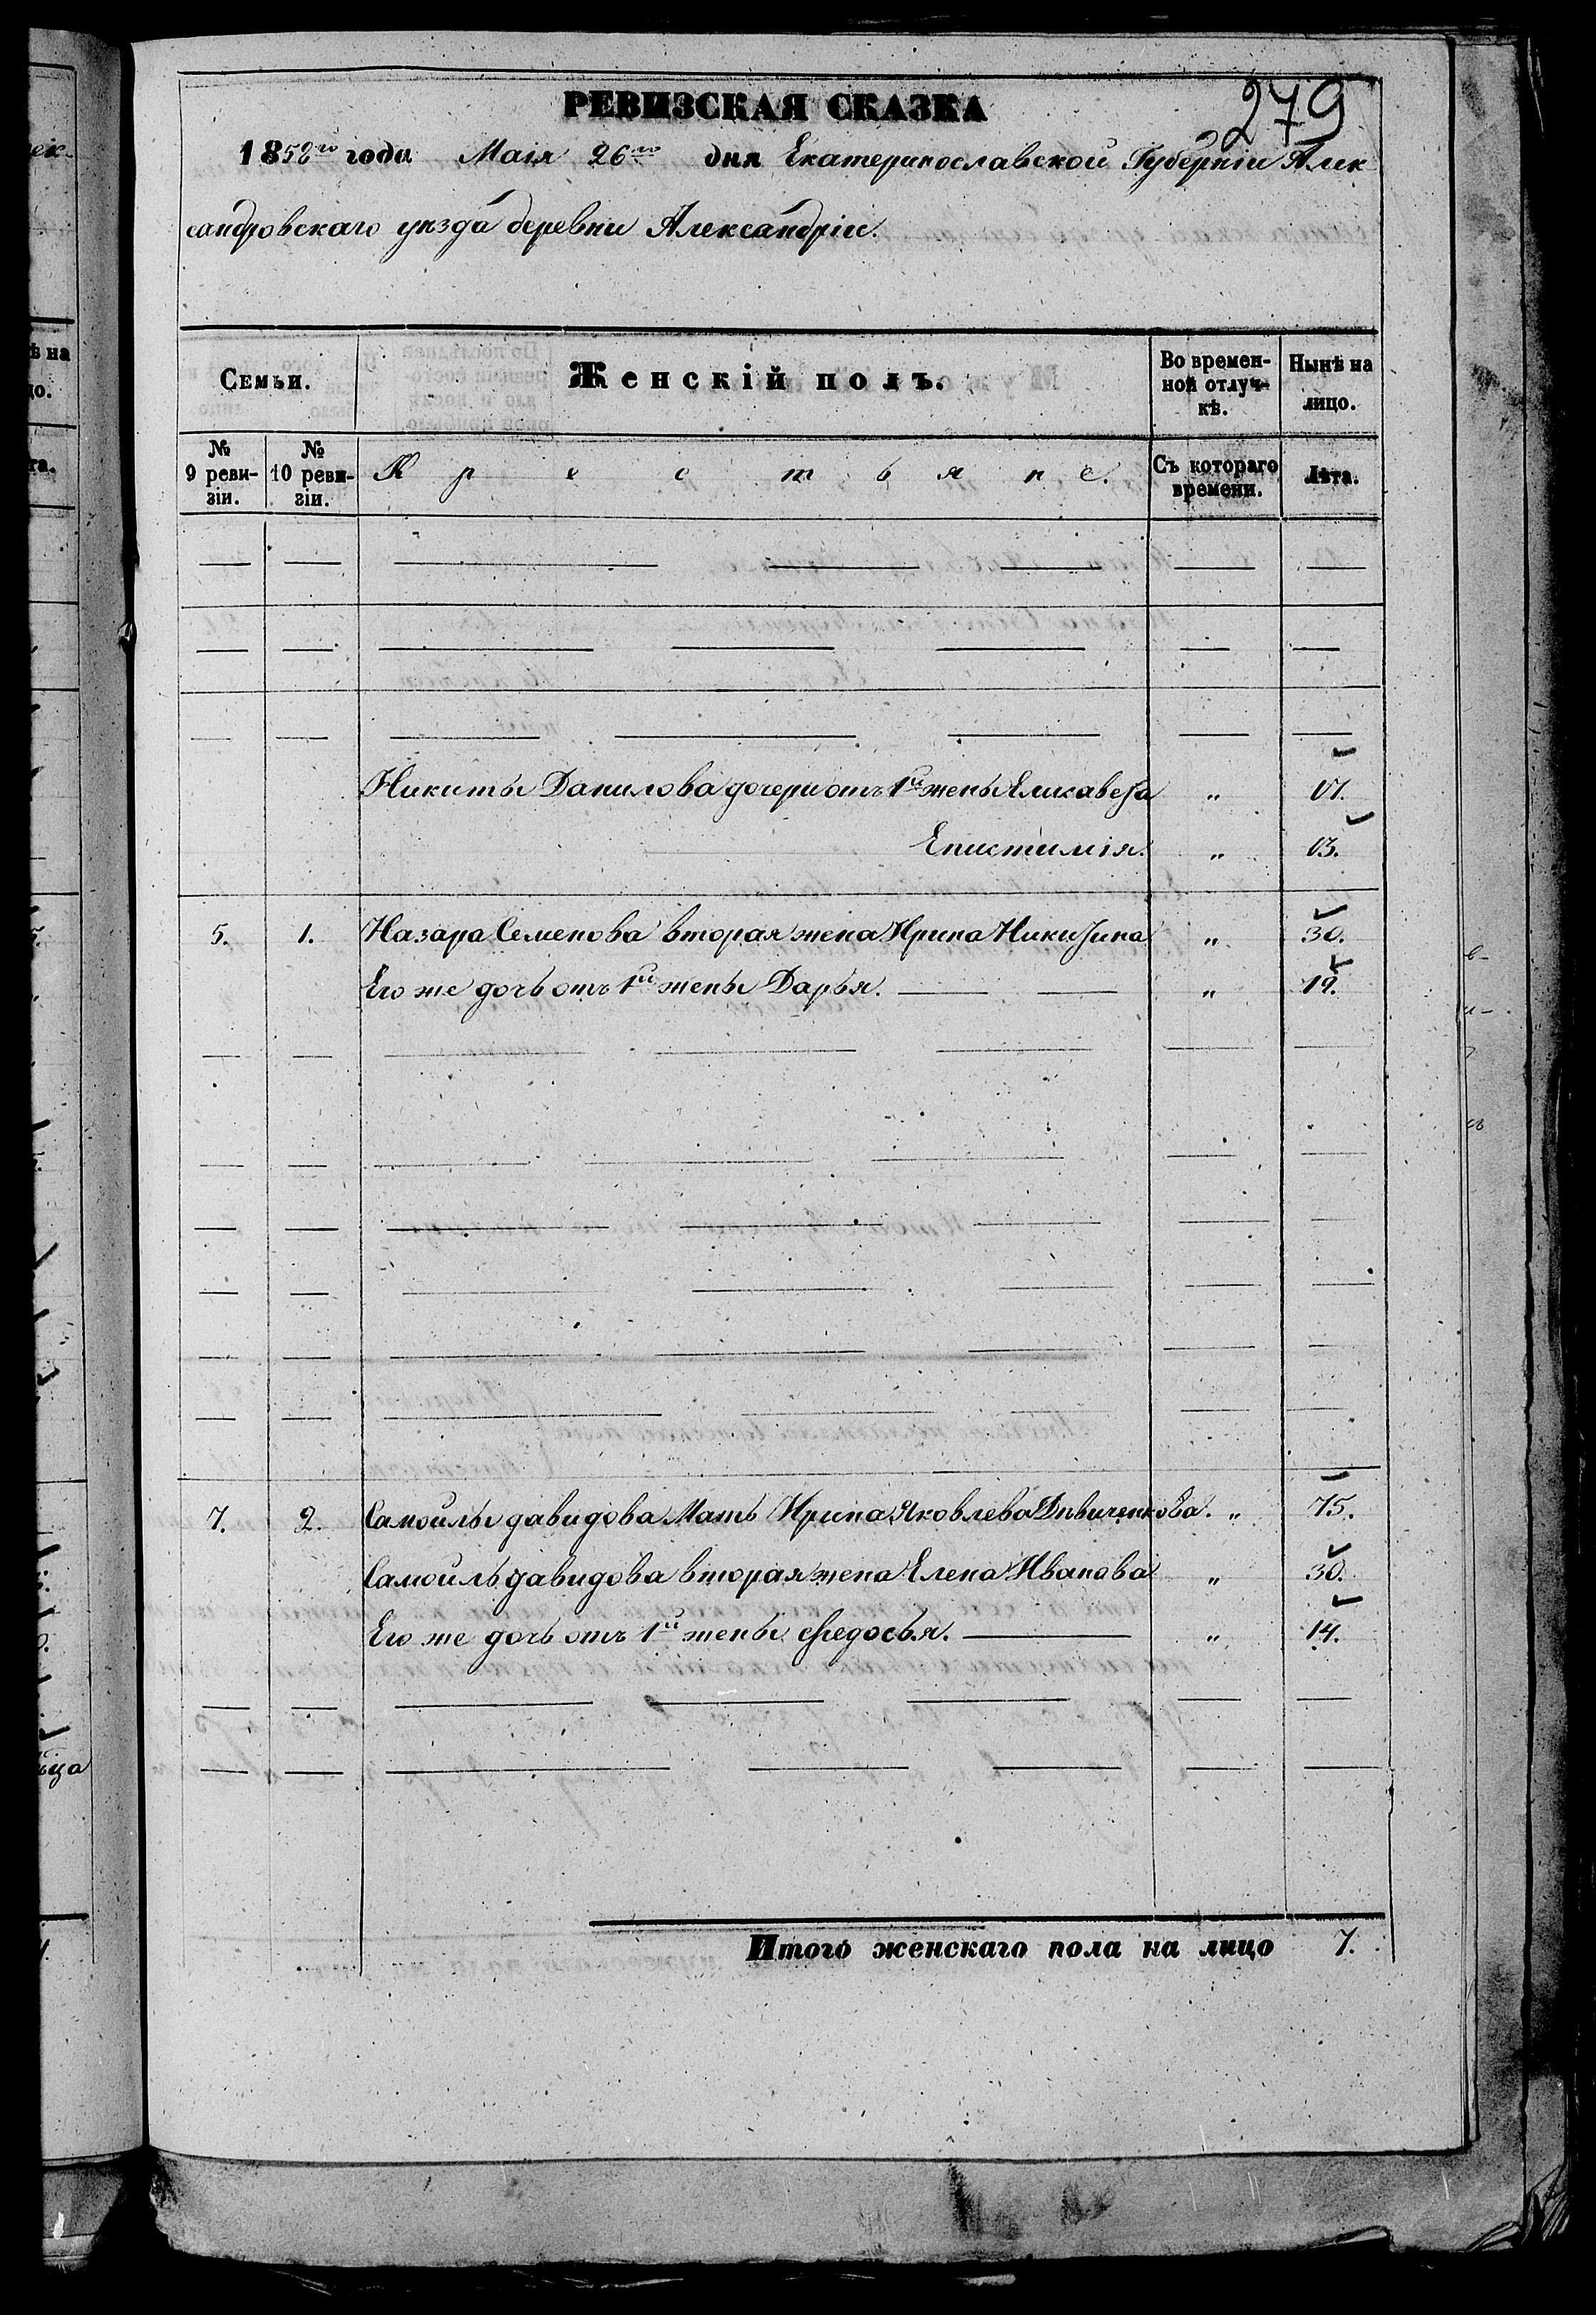 279
РЕВИЗСКАЯ СКАЗКА
1858го года Маія 26го дня Екатеринославской Губерніи Алек
сандровскаго уѣзда деревни Александріи.
Семьи. Женскій полъ. Во времен- Нынѣ на
ной отлуч- лицо.
кѣ.
№ № Крестьяне. Съ котораго Лѣта.
9 реви- 10 реви- времени.
зіи. зіи.
Никиты Данилова дочери отъ 1й жены Елисавета "
Епистимія. " 13.
5. 1. Назара Семенова вторая жена Ирина Никитина " 30.
Его же дочь отъ 1й жены Дарья. " 19.
7. 2. Самойлы давидова Мать Ирина Яковлева. " 75.
Самойлы давидова вторая жена Елена Иванова " 30.
Его же дочь отъ 1й жены Федосья. " 14.
Итого женскаго пола на лицо 7.